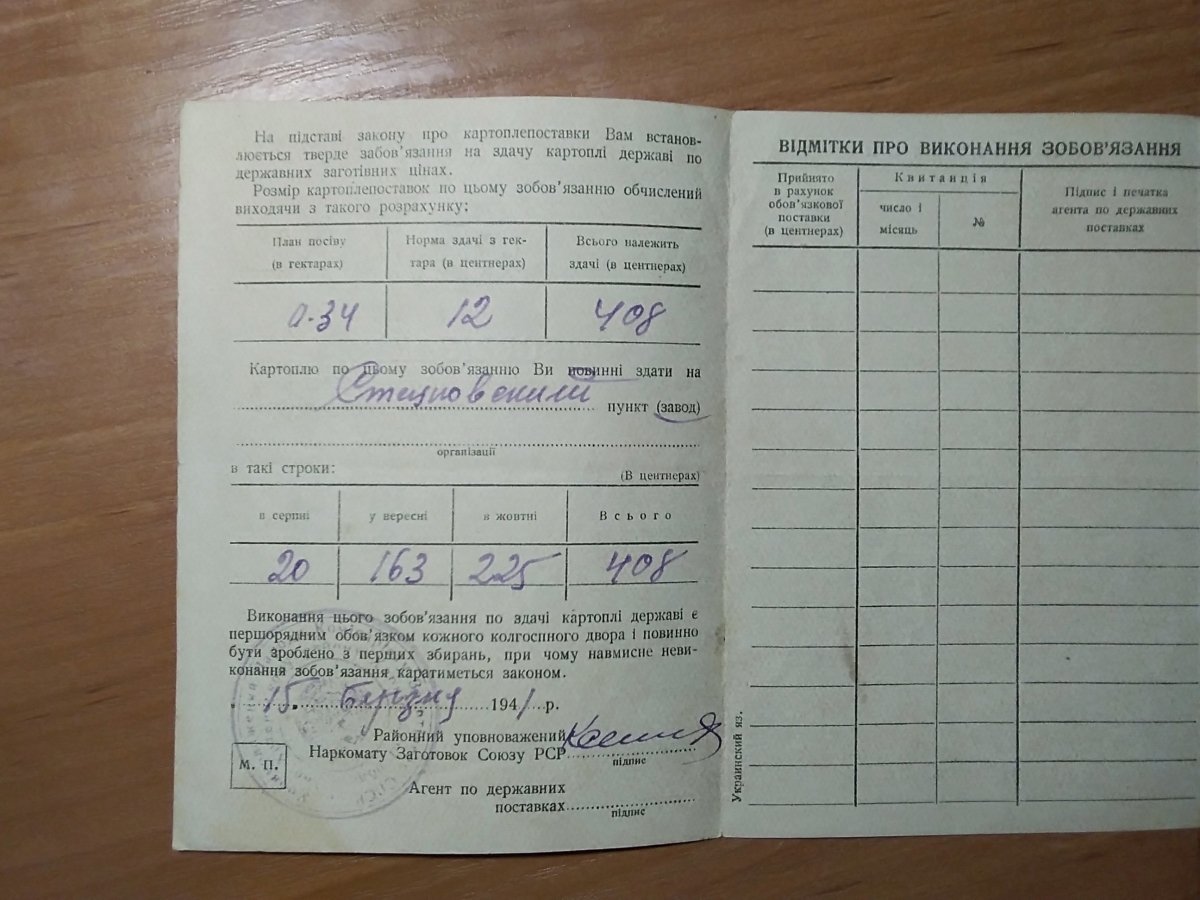 На підставі закону про картоплепоставки Вам встанов-
люється тверде забов'язання на здачу картоплі державі по
державних заготівних цінах.
Розмір картоплепоставок по цьому зобов'язанню обчислений
виходячи з такого розрахунку:
План посіву
(в гектарах)
Норма здачі з гек-
тара (в центнерах)
Всього належить
здачі (в центнерах)
0.34
12
408
Картоплю по цьому зобов'язанню Ви повинні здати на
пункт (завод)
організації
в такі строки:
(В центнерах)
в серпні
у вересні
в жовтні
Всього
20
163
225
408
Виконання цього зобов'язання по здачі картоплі державі є
першорядним обов'язком кожного колгоспного двора і повинно
бути зроблено з перших збирань, при чому навмисне неви-
конання зобов'язання каратиметься законом.
15. 1941 р.
Районний уповноважений
Наркомату Заготовок Союзу РСР
підпис
М. П.
Агент по державних
поставках
підпис
ВІДМІТКИ ПРО ВИКОНАННЯ ЗОБОВ'ЯЗАННЯ
Прийнято
в рахунок
обов'язкової
поставки
(в центнерах)
Квитанція
число і
місяць
№
Підпис і печатка
агента по державних
поставках
Украинский яз.